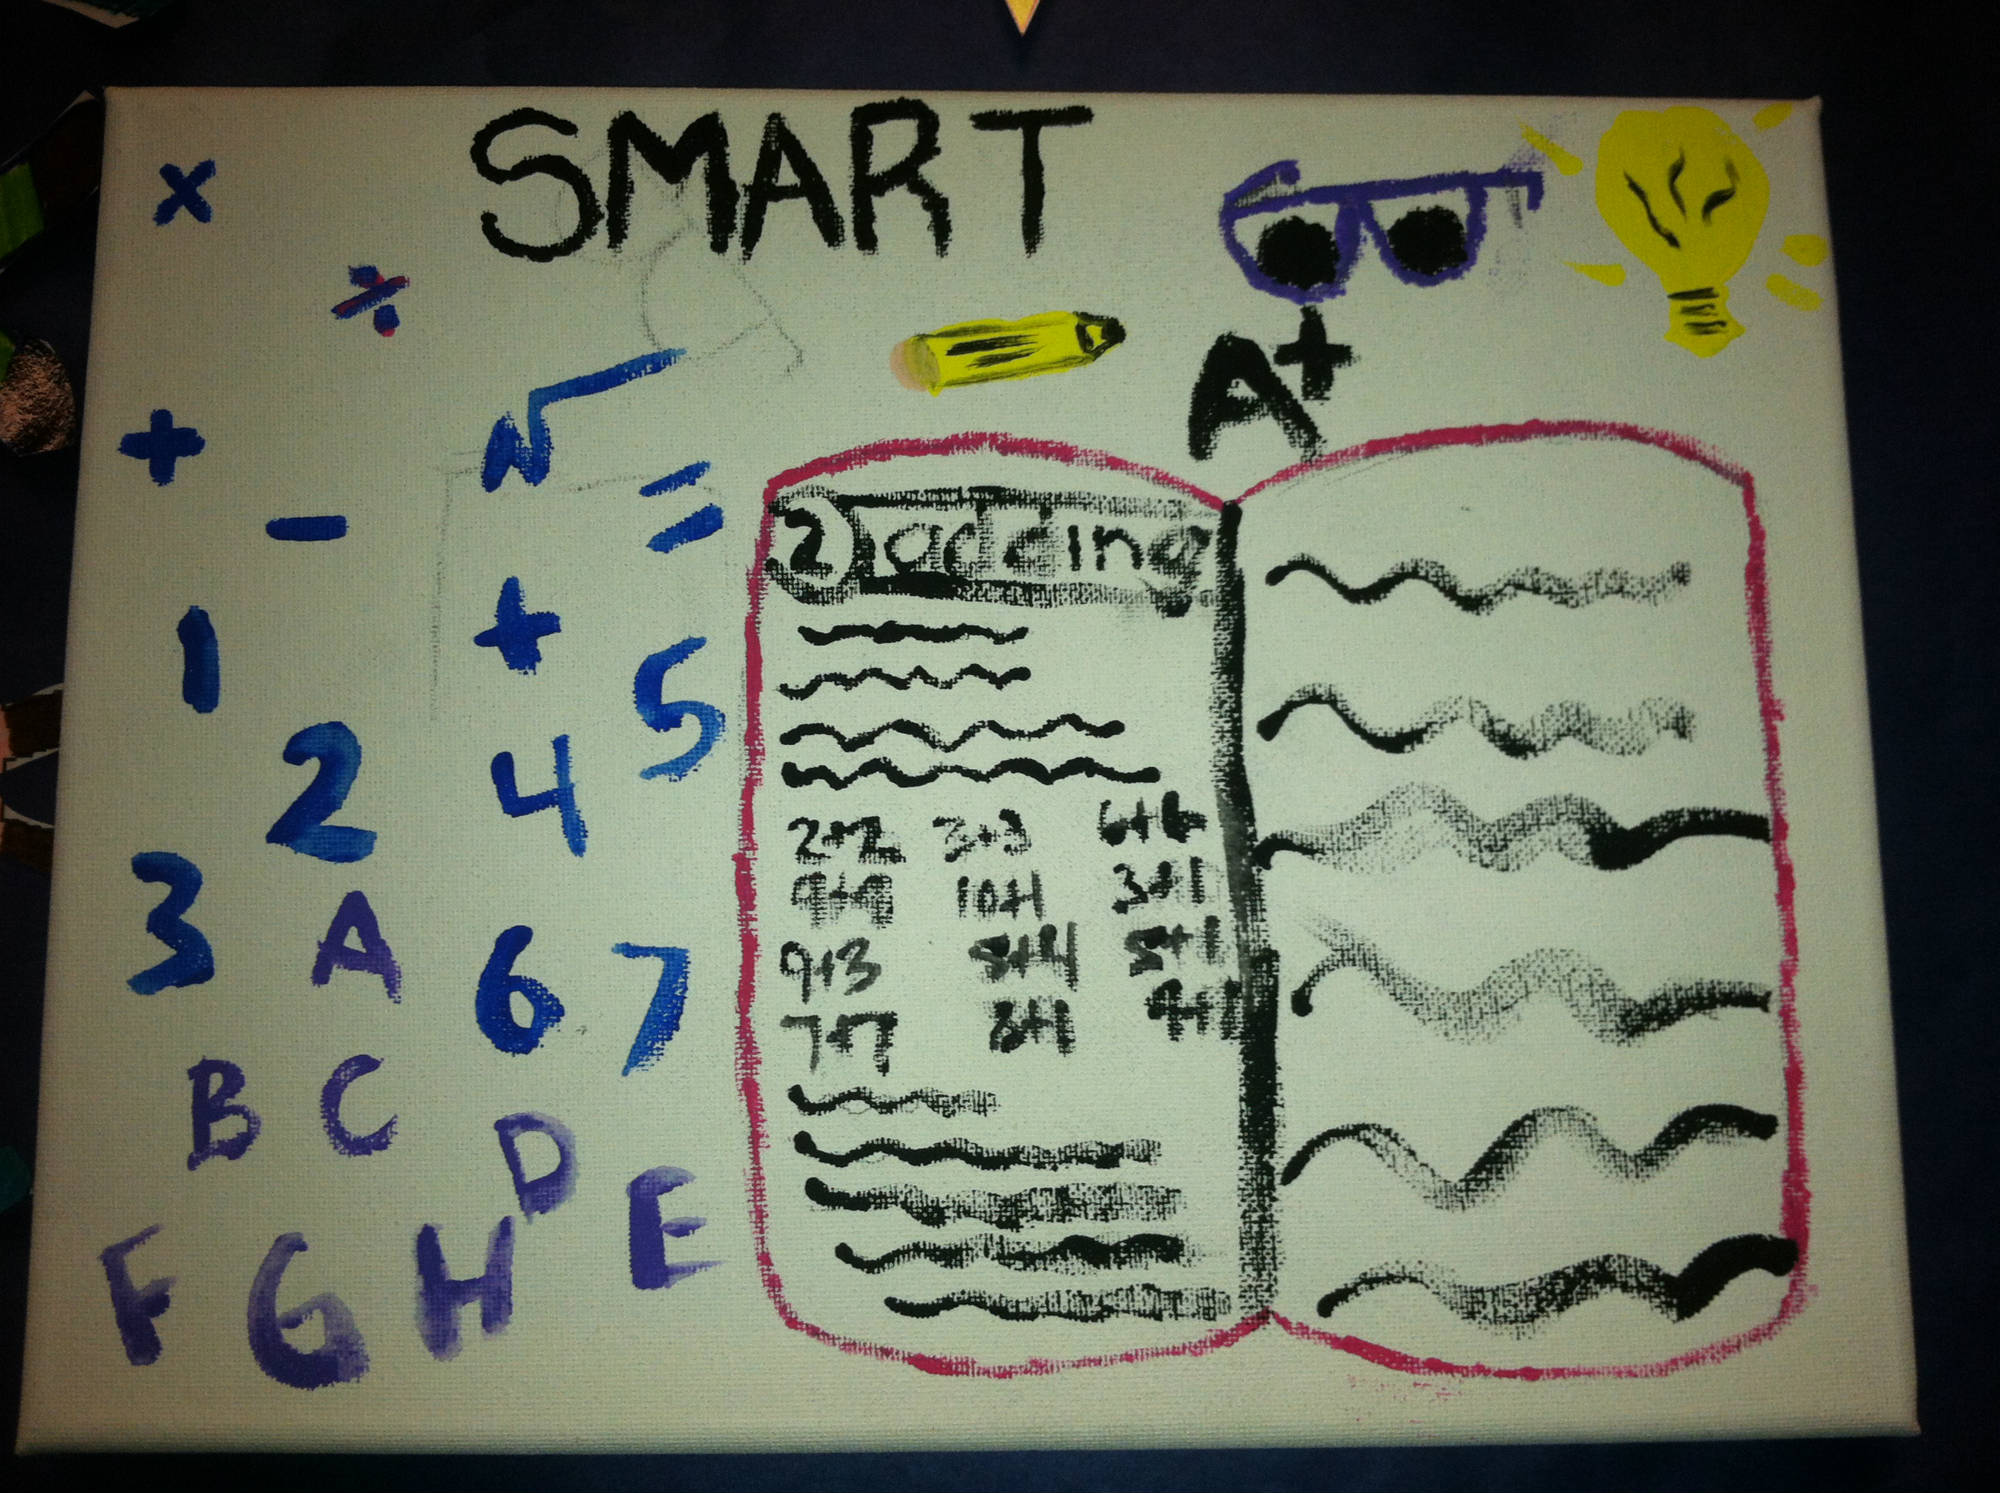 SMART
×
÷
+
√
−
=
+
1
5
2
4
3
A
6
7
B
C
D
E
F
G
H
A+
2 adding
2+2 3+3 6+6
9+9 10+1 3+1
9+3 5+1
7+7 8+1